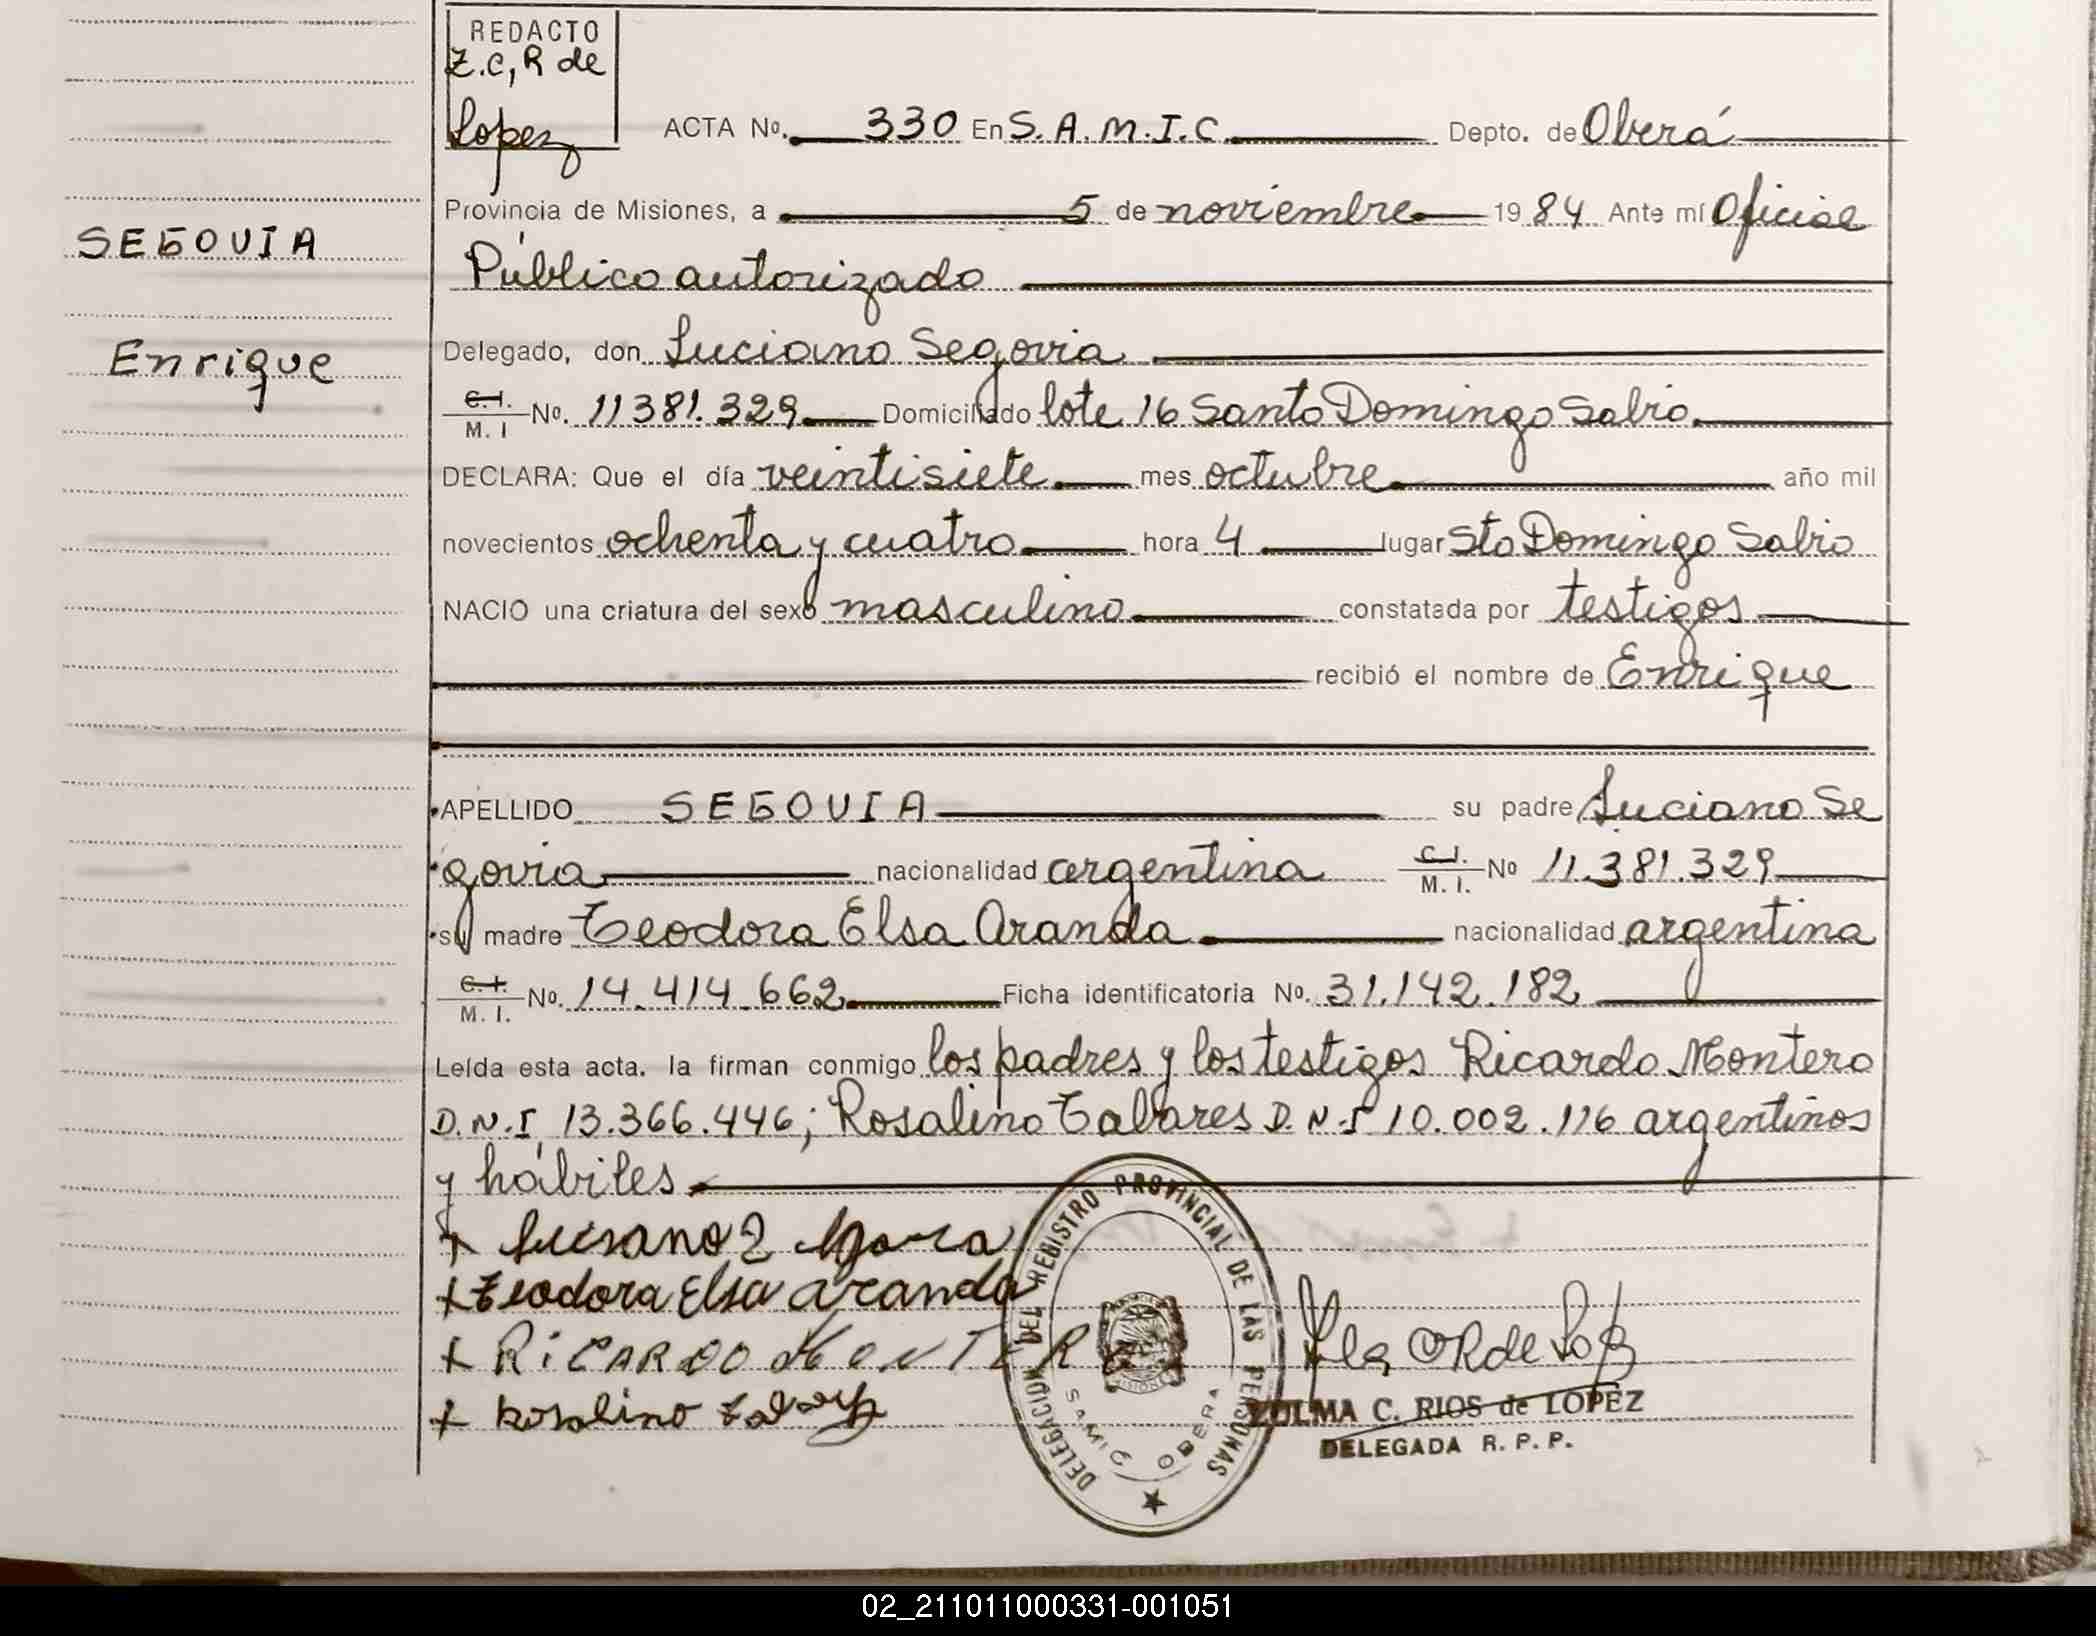 REDACTO
Z.C, R de
Lopez
ACTA No. 330 En S.A.M.I.C. Depto. de Oberá
Provincia de Misiones, a 5 de noviembre 19 84 Ante mí Oficial
SEGOVIA
Público autorizado
Enrique
Delegado, don Luciano Segovia
C.I. M. I No. 11381.329 Domiciliado lote 16 Santo Domingo Sabio
DECLARA: Que el día veintisiete mes octubre año mil
novecientos ochenta y cuatro hora 4 lugar Sto Domingo Sabio
NACIO una criatura del sexo masculino constatada por testigos
recibió el nombre de Enrique
APELLIDO SEGOVIA su padre Luciano Se
govia nacionalidad argentina C.I. M. I. No 11.381.329
su madre Teodora Elsa Aranda nacionalidad argentina
C.I. M. I. No. 14.414.662 Ficha identificatoria No. 31.142.182
Leída esta acta. la firman conmigo los padres y los testigos Ricardo Montero
D.N.I 13.366.446; Rosalino Tabares D.N.I 10.002.116 argentinos
y hábiles
+ Luisano
+ Teodora Elsa Aranda
+ RiCARDO MONTERO
+ Rosalino
DELEGACION DEL REGISTRO PROVINCIAL DE LAS PERSONAS
MISIONES
SAMIC OBERA
ZULMA C. RIOS de LOPEZ
DELEGADA R. P. P.
02_211011000331-001051